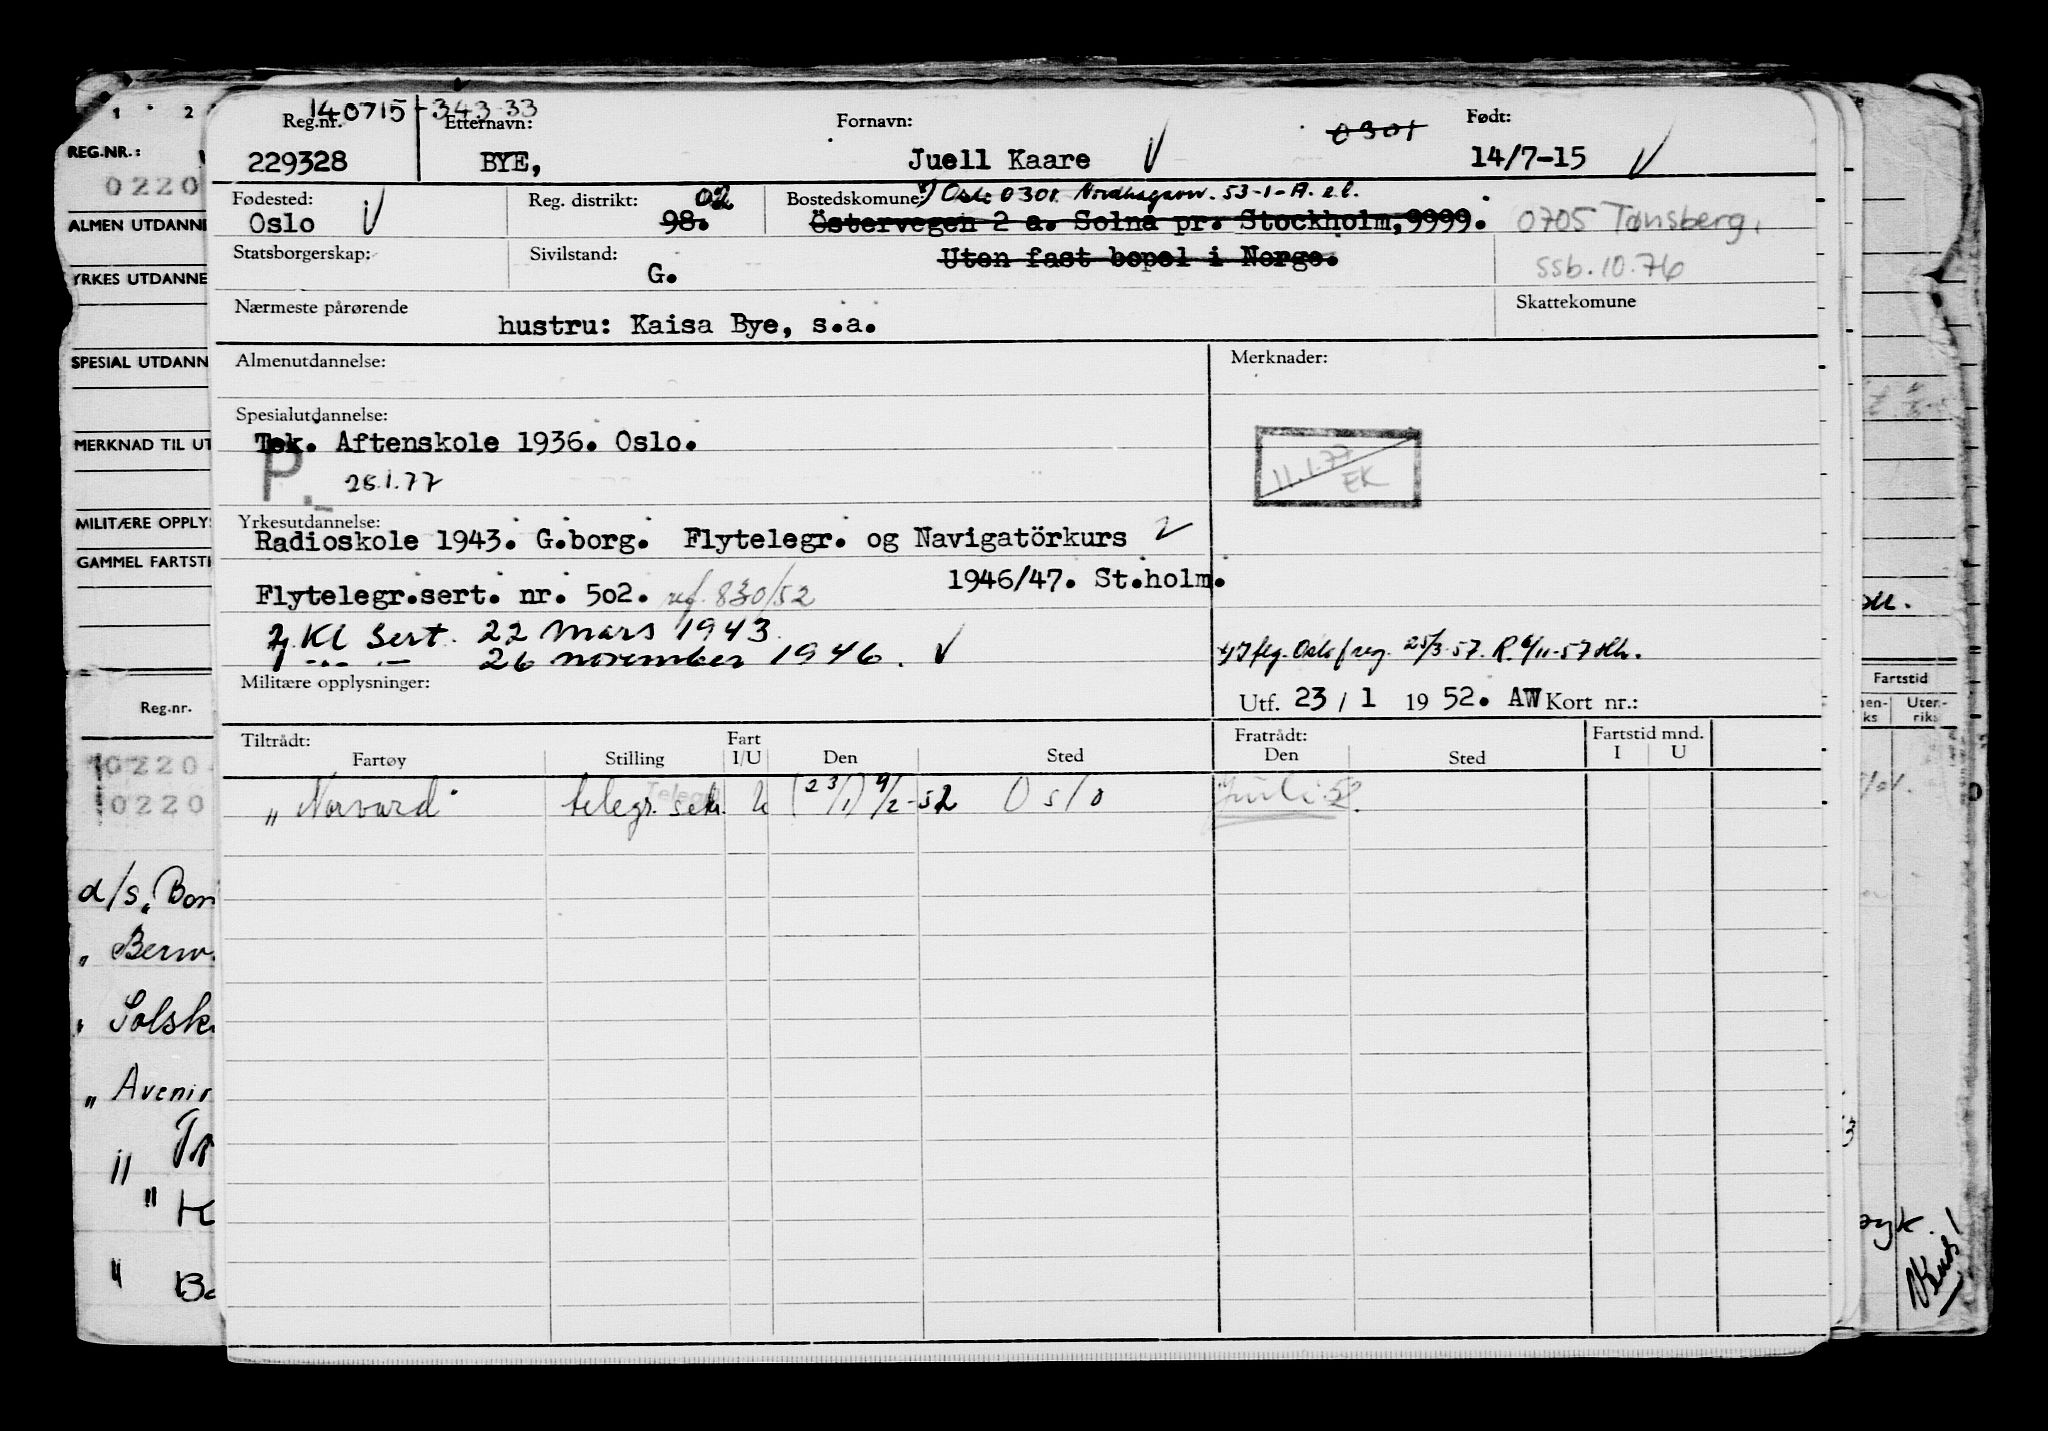 140715-34333
Reg.nr. Etternavn: Fornavn: 0301 Født:
229328 BYE, Juell Kaare 14/7-15
Fødested: Reg. distrikt: 02 Bostedskomune: Oslo 0301 53-1-A. e.l.
Oslo 98. Östervegen 2 a. Solna pr. Stockholm,9999. 0705 Tønsberg.
Statsborgerskap: Sivilstand: G. Uten fast bopel i Norge. ssb.10.76
Nærmeste pårørende Skattekomune
hustru: Kaisa Bye, s.a.
Almenutdannelse: Merknader:
Spesialutdannelse:
Tek. Aftenskole 1936. Oslo.
P. 28.1.77
11.1.77
EK
Yrkesutdannelse:
Radioskole 1943. G.borg. Flytelegr. og Navigatörkurs
1946/47. St.holm.
Flytelegr.sert. nr. 502. ref. 830/52
2 Kl Sert. 22 mars 1943
1 — — 26 november 1946.
Iflg. Oslo reg. 25/3-57. R. 6/11-57
Militære opplysninger:
Utf. 23 / 1 19 52. AW Kort nr.:
Tiltrådt: Fart Fratrådt: Fartstid mnd.
Fartøy Stilling I/U Den Sted Den Sted I U
„ Norvard" telegr. U (23/1) 9/2-52 Oslo Juli 52
1 2
REG.NR.:
0220
ALMEN UTDANNE
YRKES UTDANNE
SPESIAL UTDANN
MERKNAD TIL UT
MILITÆRE OPPLYS
GAMMEL FARTSTI
Reg.nr.
10220
0220
d/s „Bor
„ Berw
„ Solsk
„ Avenir
„ Tr
" K
" Ba
Fartstid
nen- Uten-
ks riks